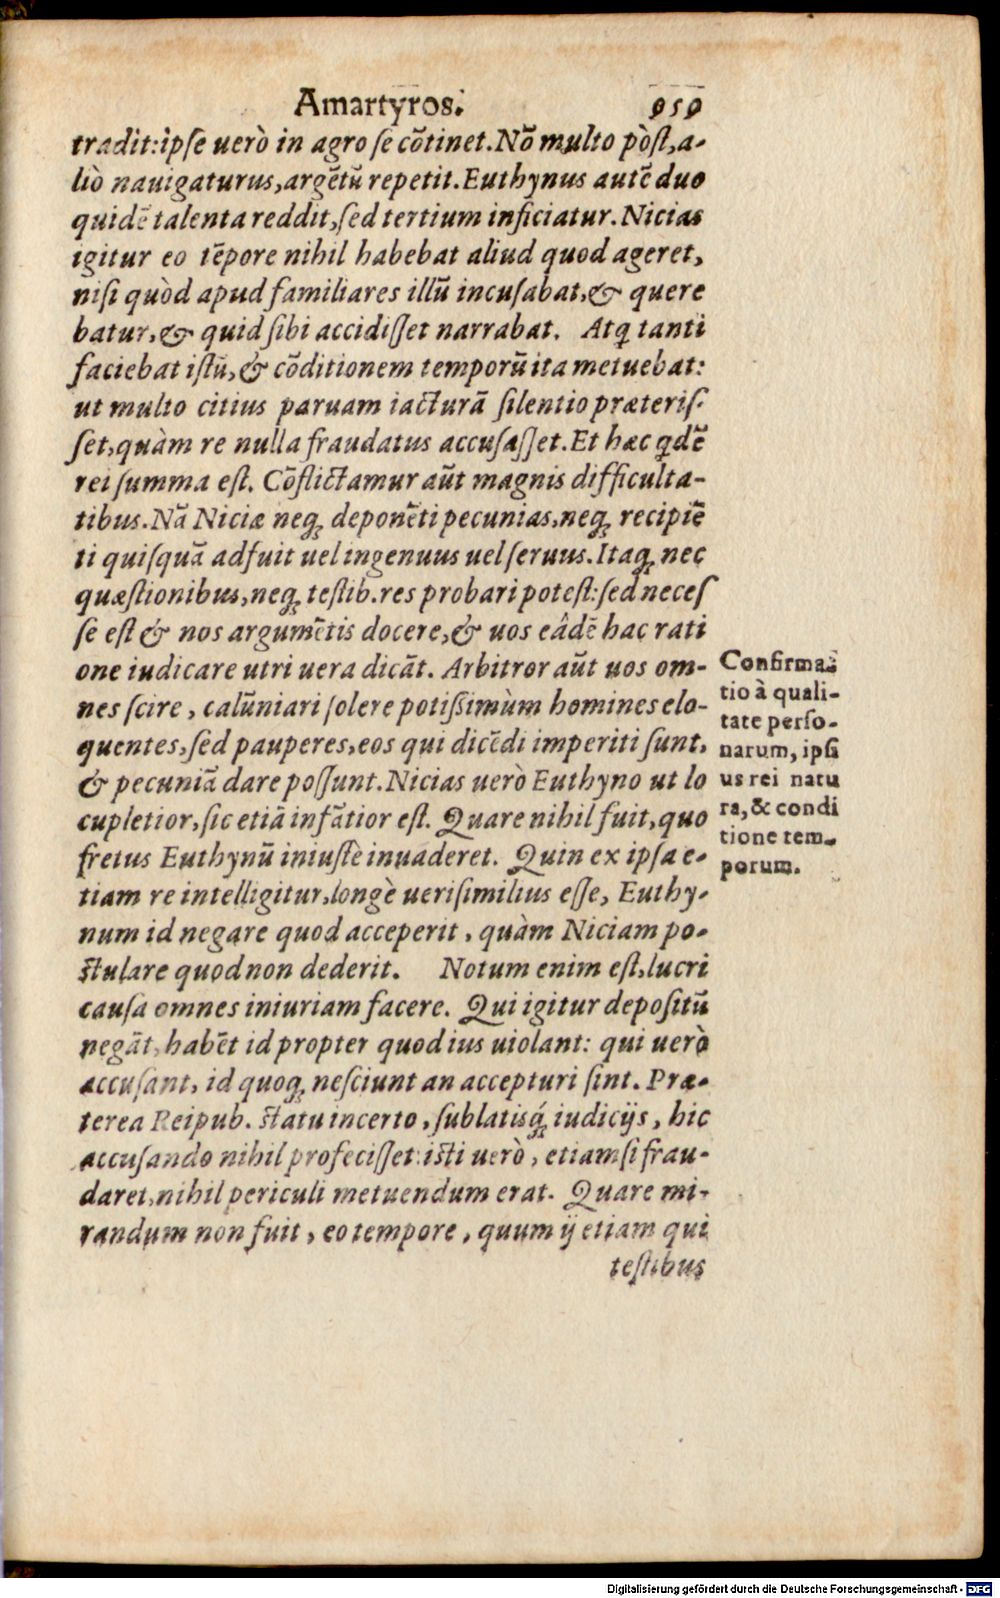 Amartyros. 959
tradit: ipse uerò in agro se cõtinet. Nõ multo pòst, a-
liò nauigaturus, argẽtũ repetit. Euthynus autẽ duo
quidẽ talenta reddit, sed tertium inficiatur. Nicias
igitur eo tẽpore nihil habebat aliud quod ageret,
nisi quòd apud familiares illũ incusabat, & quere
batur, & quid sibi accidisset narrabat. Atq tanti
faciebat istũ, & cõditionem temporũ ita metuebat:
ut multo citius paruam iacturã silentio præteris-
set, quàm re nulla fraudatus accusasset. Et hæc qdẽ
rei summa est. Cõflictamur aũt magnis difficulta-
tibus. Nã Niciæ neq; deponẽti pecunias, neq; recipiẽ
ti quisquã adfuit uel ingenuus uel seruus. Itaq; nec
quæstionibus, neq; testib. res probari potest: sed neces
se est & nos argumẽtis docere, & uos eâdẽ hac rati
one iudicare utri uera dicãt. Arbitror aũt uos om-
nes scire, calũniari solere potissimùm homines elo-
quentes, sed pauperes, eos qui dicẽdi imperiti sunt,
& pecuniã dare possunt. Nicias uerò Euthyno ut lo
cupletior, sic etiã infãtior est. Quare nihil fuit, quo
fretus Euthynũ iniustè inuaderet. Quin ex ipsa e-
tiam re intelligitur, longè uerisimilius esse, Euthy-
num id negare quod acceperit, quàm Niciam po-
stulare quod non dederit. Notum enim est, lucri
causa omnes iniuriam facere. Qui igitur depositũ
negãt, habẽt id propter quod ius uiolant: qui uerò
accusant, id quoq; nesciunt an accepturi sint. Præ-
terea Reipub. statu incerto, sublatisq́; iudicijs, hic
accusando nihil profecisset: isti uerò, etiamsi frau-
daret, nihil periculi metuendum erat. Quare mi-
randum non fuit, eo tempore, quum ij etiam qui
testibus
Confirma-
tio à quali-
tate perso-
narum, ipsi
us rei natu
ra, & condi
tione tem-
porum.
Digitalisierung gefördert durch die Deutsche Forschungsgemeinschaft - DFG